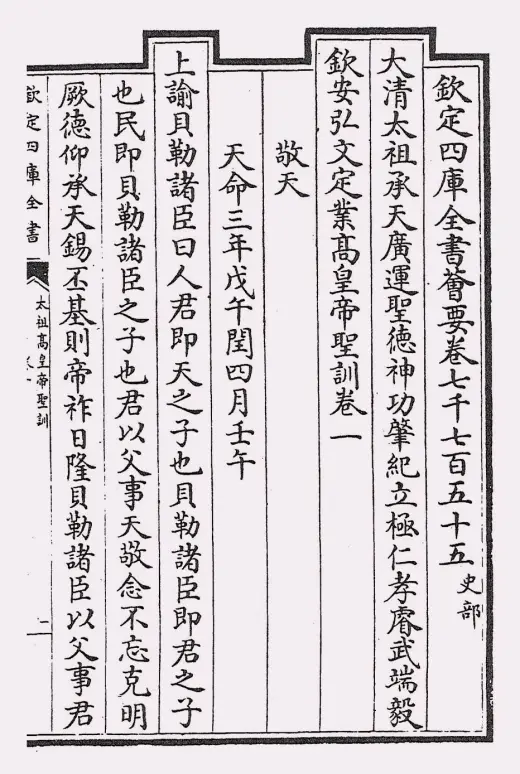 欽定四庫全書薈要卷七千七百五十五 史部
大清太祖承天廣運聖德神功肇紀立極仁孝睿武端毅
欽安弘文定業高皇帝聖訓卷一
敬天
天命三年戊午閏四月壬午
上諭貝勒諸臣曰人君即天之子也貝勒諸臣即君之子
也民即貝勒諸臣之子也君以父事天敬念不忘克明
厥德仰承天錫丕基則帝祚日隆貝勒諸臣以父事君
欽定四庫全書
太祖高皇帝聖訓